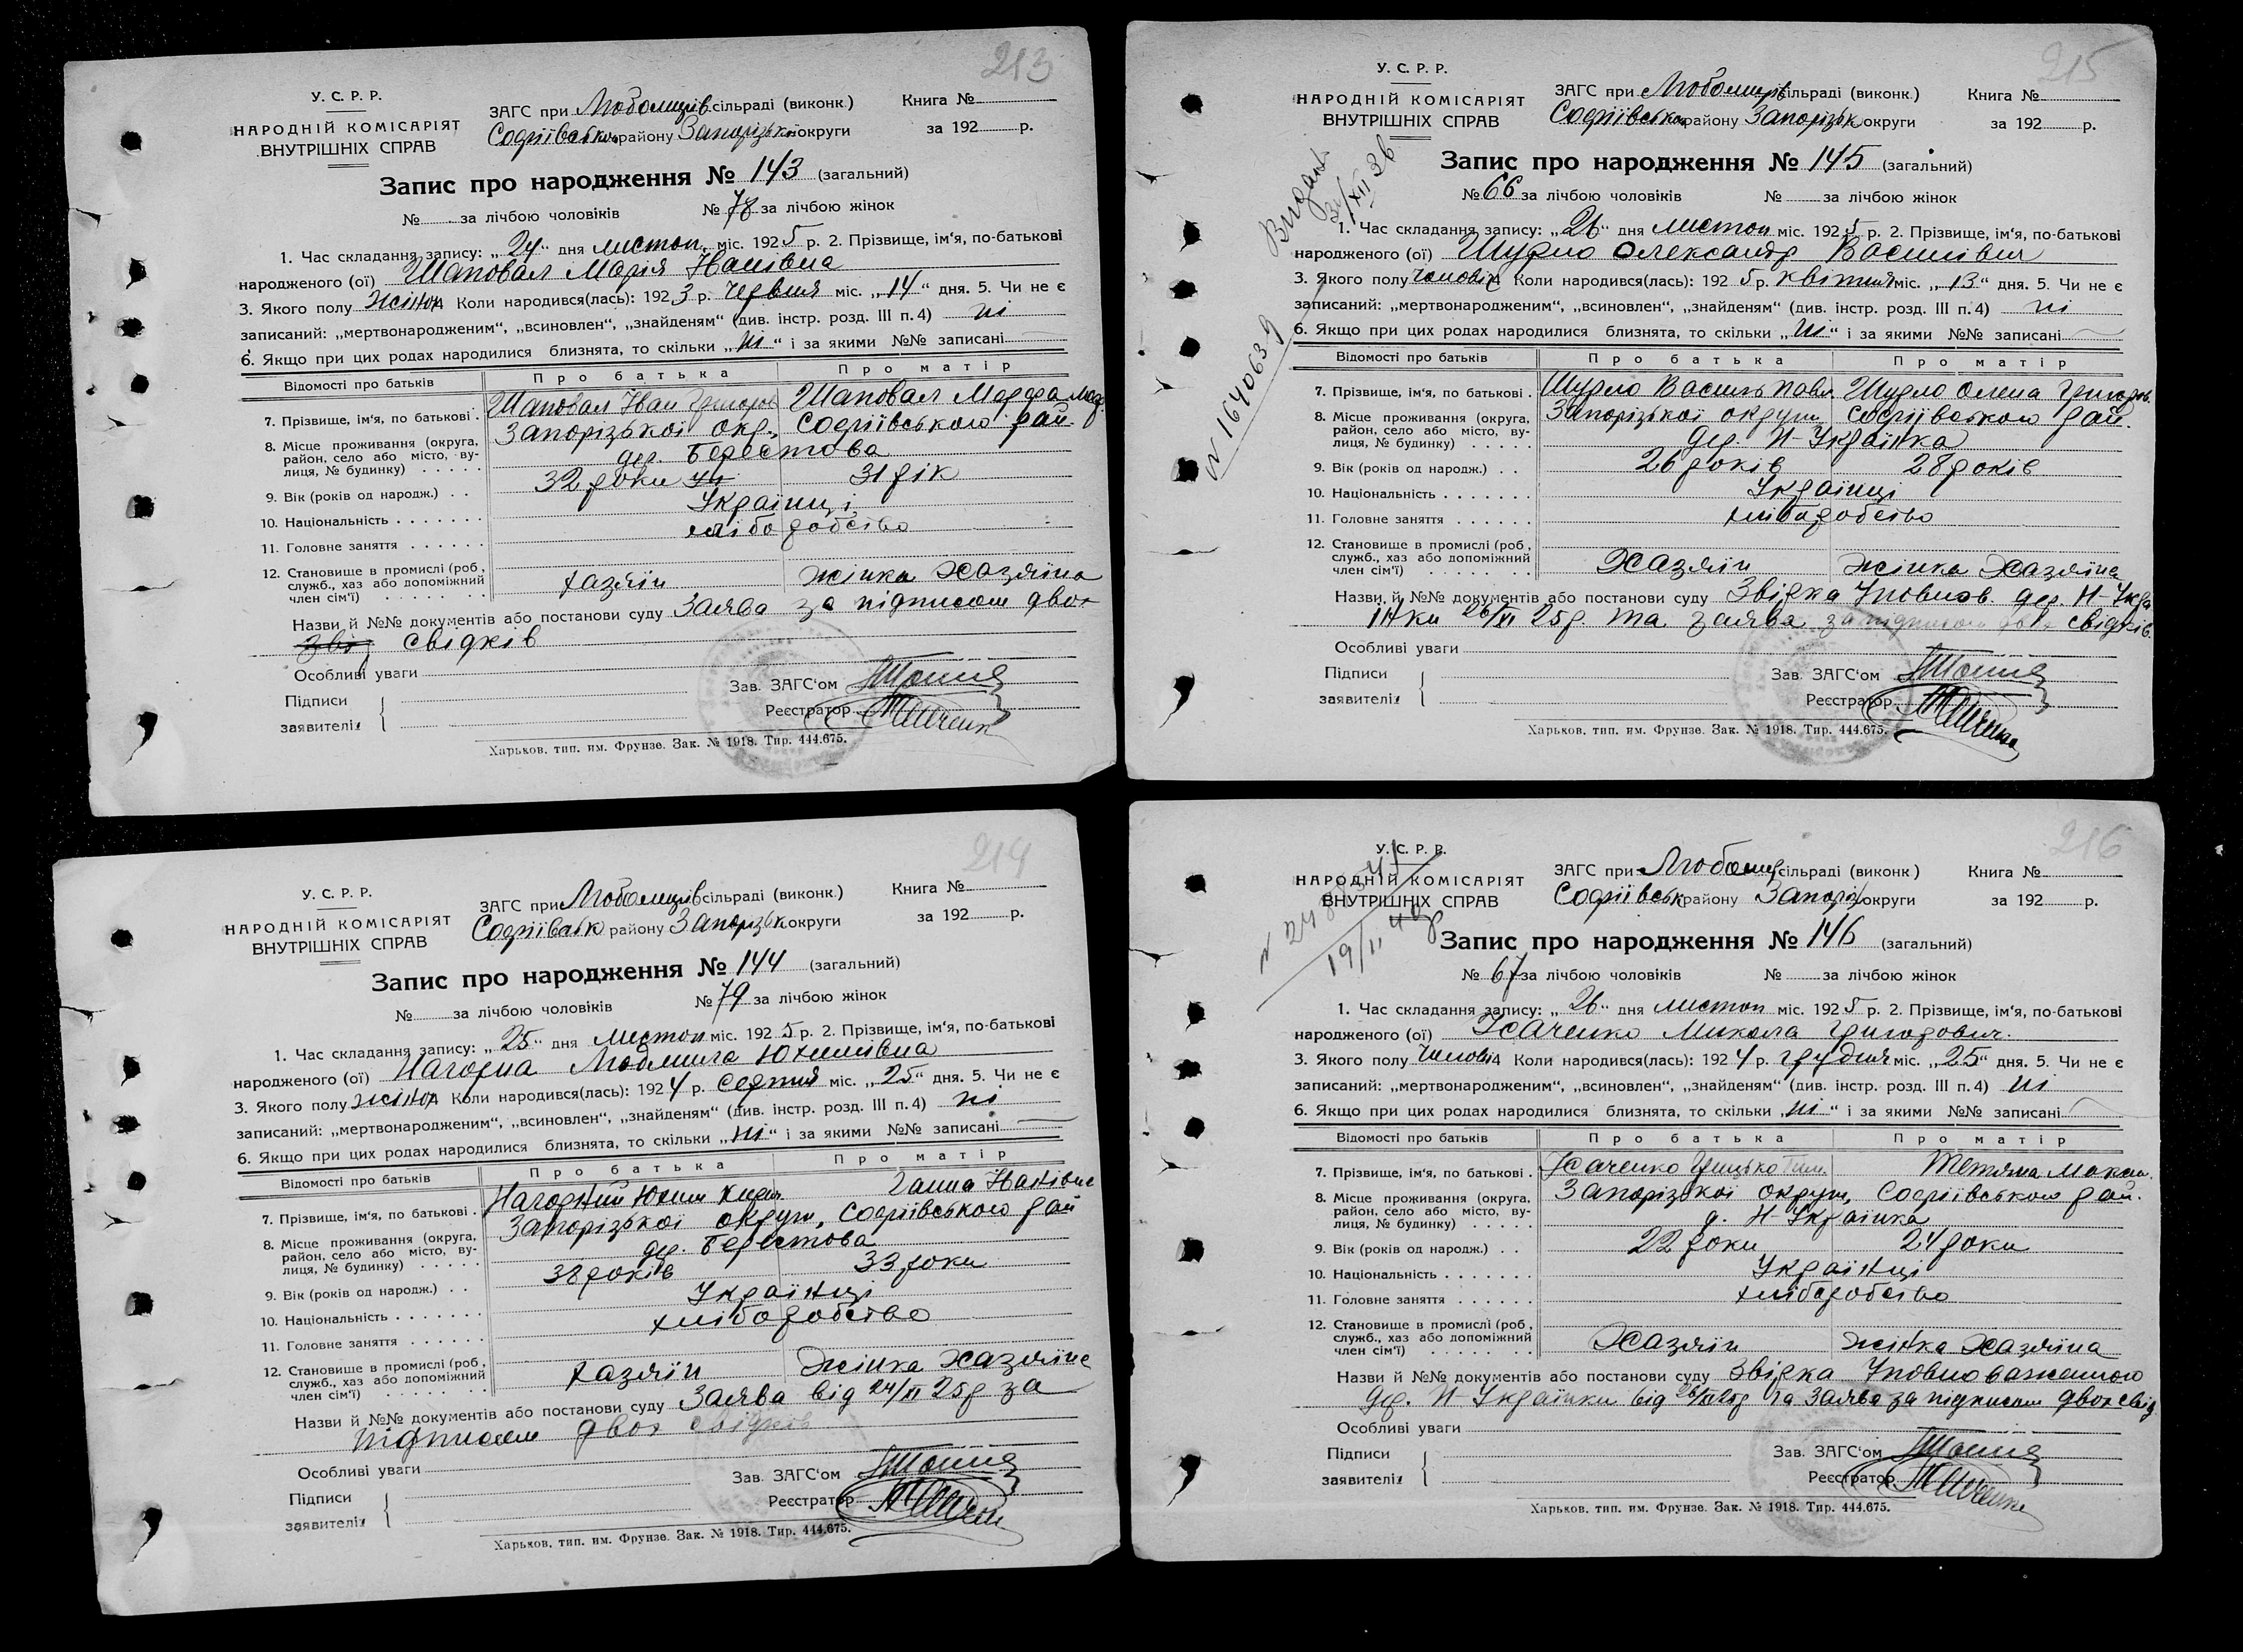 213
У. С. Р. Р.
НАРОДНІЙ КОМІСАРІЯТ
ВНУТРІШНІХ СПРАВ
ЗАГС при Любомирів сільраді (виконк.)
Книга №
Софіївськ району Запорізької округи
за 192 р.
Запис про народження № 143 (загальний)
№ за лічбою чоловіків № 78 за лічбою жінок
1. Час складання запису: „24“ дня листоп. міс. 1925 р. 2. Прізвище, ім‘я, по-батькові
народженого (ої) Шаповал Марія Іванівна
3. Якого полу жіноч Коли народився(лась): 1923 р. червня міс. „14“ дня. 5. Чи не є
записаний: „мертвонародженим“, „всиновлен“, „знайденям“ (див. інстр. розд. III п. 4) ні
6. Якщо при цих родах народилися близнята, то скільки „ні“ і за якими №№ записані
Відомості про батьків Про батька Про матір
7. Прізвище, ім‘я, по батькові Шаповал Іван Григоров Шаповал Марфа
8. Місце проживання (округа, район, село або місто, вулиця, № будинку) Запорізької окр., Софіївського рай.
дер. Берестова
9. Вік (років од народж.) 32 роки 31 рік
10. Національність Українці
11. Головне заняття хліборобство
12. Становище в промислі (роб., служб., хаз або допоміжний член сім‘ї) хазяїн жінка хазяїна
Назви й №№ документів або постанови суду Заява за підписом двох
свідків
Особливі уваги
Підписи
заявителів
Зав. ЗАГС‘ом
Реєстратор
Харьков, тип. им. Фрунзе. Зак. № 1918. Тир. 444.675.
215
У. С. Р. Р.
НАРОДНІЙ КОМІСАРІЯТ
ВНУТРІШНІХ СПРАВ
ЗАГС при Любомирів сільраді (виконк.)
Книга №
Софіївськ району Запорізьк округи
за 192 р.
Запис про народження № 145 (загальний)
№ 66 за лічбою чоловіків № за лічбою жінок
1. Час складання запису: „26“ дня листоп міс. 1925 р. 2. Прізвище, ім‘я, по-батькові
народженого (ої) Шурло Олександр Васильович
3. Якого полу чоловіч Коли народився(лась): 1925 р. квітня міс. „13“ дня. 5. Чи не є
записаний: „мертвонародженим“, „всиновлен“, „знайденям“ (див. інстр. розд. III п. 4) ні
6. Якщо при цих родах народилися близнята, то скільки „ні“ і за якими №№ записані
Відомості про батьків Про батька Про матір
7. Прізвище, ім‘я, по батькові Шурло Василь Павл. Шурло Олена Григоров.
8. Місце проживання (округа, район, село або місто, вулиця, № будинку) Запорізької округи Софіївського рай.
дер. Н-Українка
9. Вік (років од народж.) 26 років 28 років
10. Національність Українці
11. Головне заняття хліборобство
12. Становище в промислі (роб., служб., хаз або допоміжний член сім‘ї) Хазяїн жінка Хазяїна
Назви й №№ документів або постанови суду Звідка Уповнов. дер. Н-Укра
їнки 26/XI 25р. та заява за підписом двох свідків.
Особливі уваги
Підписи
заявителів
Зав. ЗАГС‘ом
Реєстратор
Харьков, тип. им. Фрунзе. Зак. № 1918. Тир. 444.675.
Видано
31/XII 36
N 1640639
214
У. С. Р. Р.
НАРОДНІЙ КОМІСАРІЯТ
ВНУТРІШНІХ СПРАВ
ЗАГС при Любомирів сільраді (виконк.)
Книга №
Софіївськ району Запорізьк округи
за 192 р.
Запис про народження № 144 (загальний)
№ за лічбою чоловіків № 79 за лічбою жінок
1. Час складання запису: „25“ дня листоп міс. 1925 р. 2. Прізвище, ім‘я, по-батькові
народженого (ої) Нагорна Людмила Юхимівна
3. Якого полу жіноч Коли народився(лась): 1924 р. серпня міс. „25“ дня. 5. Чи не є
записаний: „мертвонародженим“, „всиновлен“, „знайденям“ (див. інстр. розд. III п. 4) ні
6. Якщо при цих родах народилися близнята, то скільки „ні“ і за якими №№ записані
Відомості про батьків Про батька Про матір
7. Прізвище, ім‘я, по батькові Нагорний Юхим Ганна Іванівна
8. Місце проживання (округа, район, село або місто, вулиця, № будинку) Запорізької округи, Софіївського рай
дер. Берестова
9. Вік (років од народж.) 38 років 33 роки
10. Національність Українці
11. Головне заняття хліборобство
12. Становище в промислі (роб., служб., хаз або допоміжний член сім‘ї) хазяїн жінка хазяїна
Назви й №№ документів або постанови суду Заява від 24/XI 25р за
підписом двох свідків
Особливі уваги
Підписи
заявителів
Зав. ЗАГС‘ом
Реєстратор
Харьков, тип. им. Фрунзе. Зак. № 1918. Тир. 444.675.
216
У. С. Р. Р.
НАРОДНІЙ КОМІСАРІЯТ
ВНУТРІШНІХ СПРАВ
ЗАГС при Любомир сільраді (виконк.)
Книга №
Софіївськ району Запоріз округи
за 192 р.
Запис про народження № 146 (загальний)
№ 67 за лічбою чоловіків № за лічбою жінок
1. Час складання запису: „26“ дня листоп міс. 1925 р. 2. Прізвище, ім‘я, по-батькові
народженого (ої) Усаченко Микола Григорович.
3. Якого полу чоловіч Коли народився(лась): 1924 р. грудня міс. „25“ дня. 5. Чи не є
записаний: „мертвонародженим“, „всиновлен“, „знайденям“ (див. інстр. розд. III п. 4) ні
6. Якщо при цих родах народилися близнята, то скільки „ні“ і за якими №№ записані
Відомості про батьків Про батька Про матір
7. Прізвище, ім‘я, по батькові Усаченко Грицько Тим. Тетяна Максим.
8. Місце проживання (округа, район, село або місто, вулиця, № будинку) Запорізької округи, Софіївського рай.
д. Н-Українка
9. Вік (років од народж.) 22 роки 24 роки
10. Національність Українці
11. Головне заняття хліборобство
12. Становище в промислі (роб., служб., хаз або допоміжний член сім‘ї) Хазяїн жінка Хазяїна
Назви й №№ документів або постанови суду Звідка Уповноваженого
дер. Н-Українки від 26/XI 25р та Заява за підписом двох свід
Особливі уваги
Підписи
заявителів
Зав. ЗАГС‘ом
Реєстратор
Харьков, тип. им. Фрунзе. Зак. № 1918. Тир. 444.675.